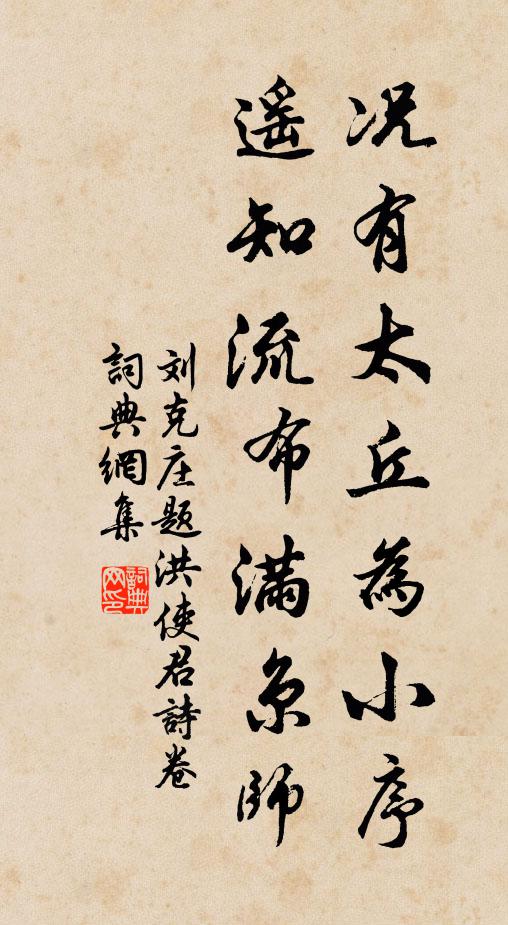 况有太丘為小序
遥知流布滿京師
刘克庄題洪使君詩卷
詞典網集
詞典网印